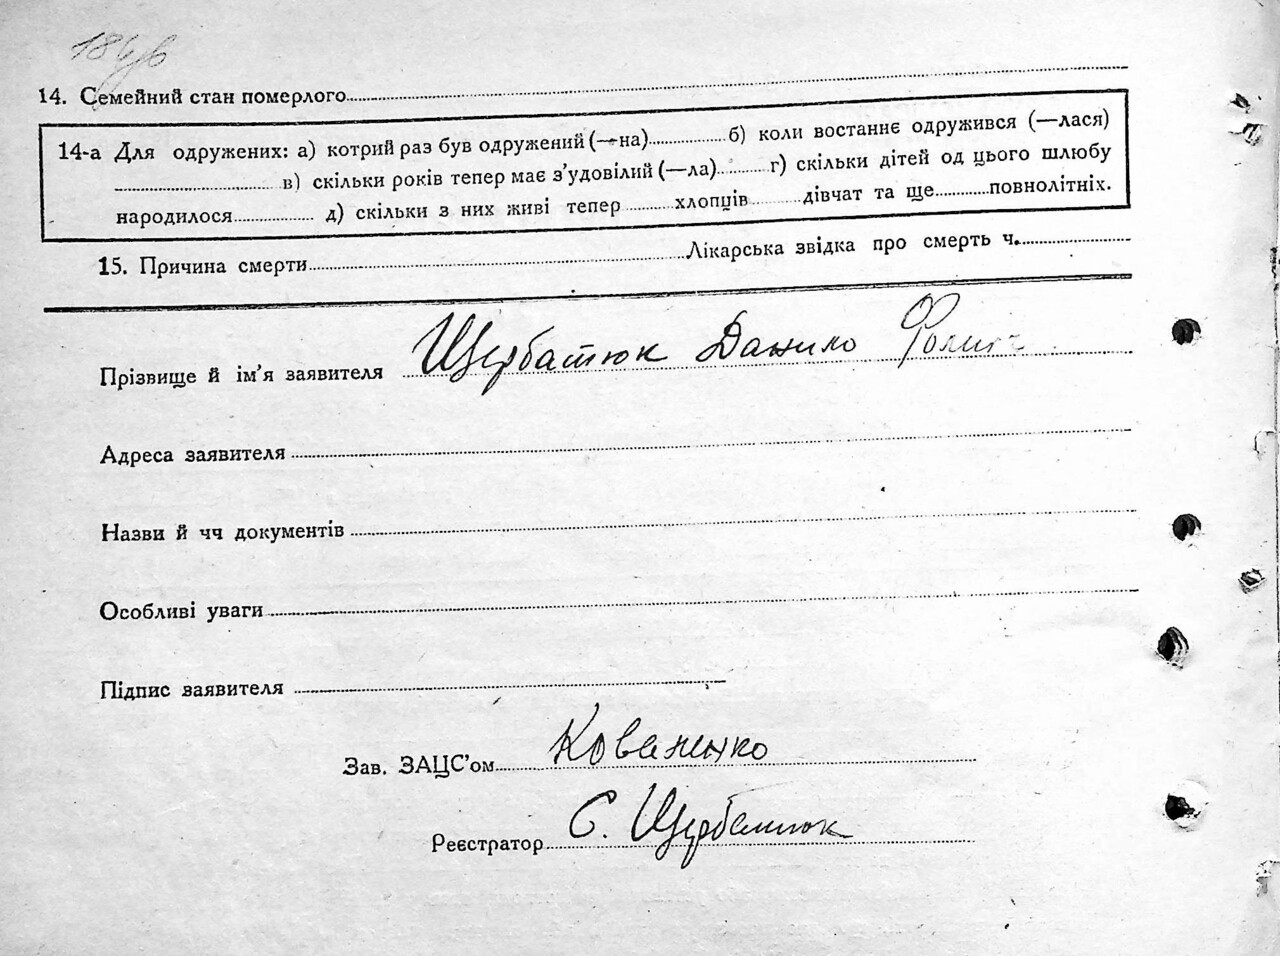 184/6
14. Семейний стан померлого
14-а Для одружених: а) котрий раз був одружений (—на) б) коли востаннє одружився (—лася)
в) скільки років тепер має з'удовілий (—ла) г) скільки дітей од цього шлюбу
народилося д) скільки з них живі тепер хлопців дівчат та ще повнолітніх.
15. Причина смерти Лікарська звідка про смерть ч.
Прізвище й ім'я заявителя Щербатюк Данило
Адреса заявителя
Назви й чч документів
Особливі уваги
Підпис заявителя
Зав. ЗАЦС'ом Коваленко
Реєстратор С. Щербатюк